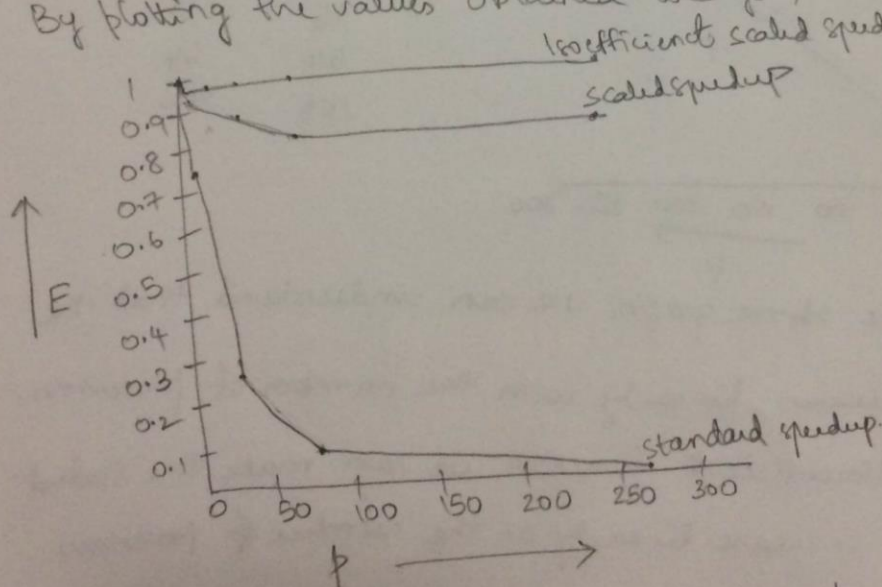 By plotting the values
Isoefficienct scaled speed
scaled speedup
1
0.9
0.8
0.7
0.6
0.5
0.4
0.3
0.2
0.1
E
standard speedup.
0 50 100 150 200 250 300
p